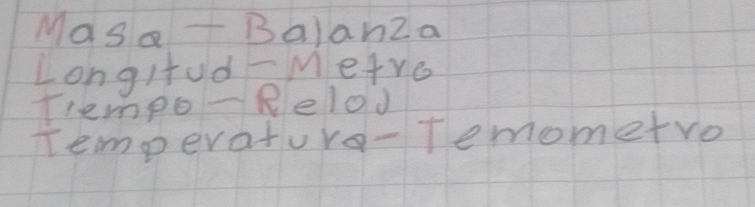 Masa - Balanza
Longitud - Metro
Tiempo - Reloj
Temperatura - Temometro